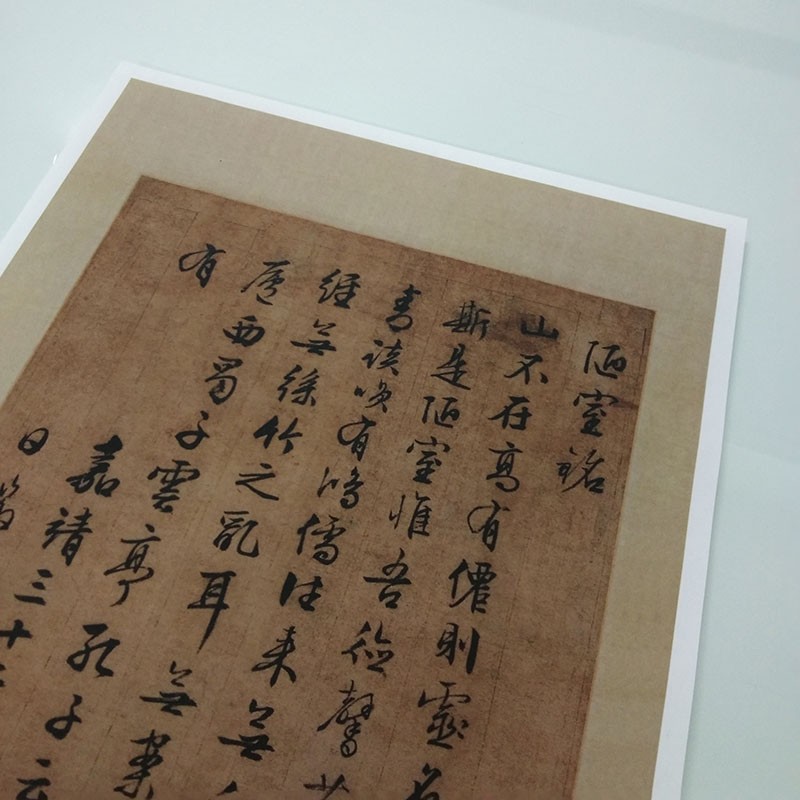 陋室銘
山不在高有僊則靈
斯是陋室惟吾德馨
青談笑有鴻儒往來無
經無絲竹之亂耳無案
廬西蜀子雲亭孔子云
有
嘉靖三十
日